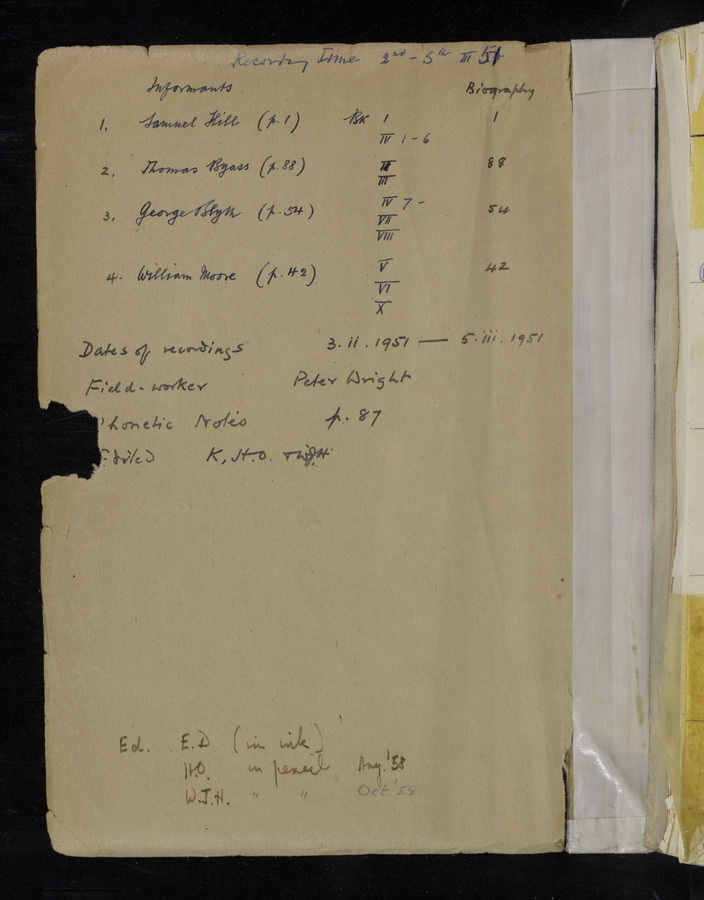 Recording Time 2nd - 5th III 51
Informants Biography
1. Samuel Hill (p.1) Bk I 1
IV 1-6
2. Thomas Byass (p.88) II 88
III
3. George Blyth (p.54) IV 7- 54
VII
VIII
4. William Moore (p.42) V 42
VI
X
Dates of recordings 3.ii.1951 — 5.iii.1951
Field-worker Peter Wright
Phonetic Notes p.87
Edited K, H.O.
Ed. E.D (in ink)
H.O. in pencil Aug. '58
W.J.H. " " Oct '58